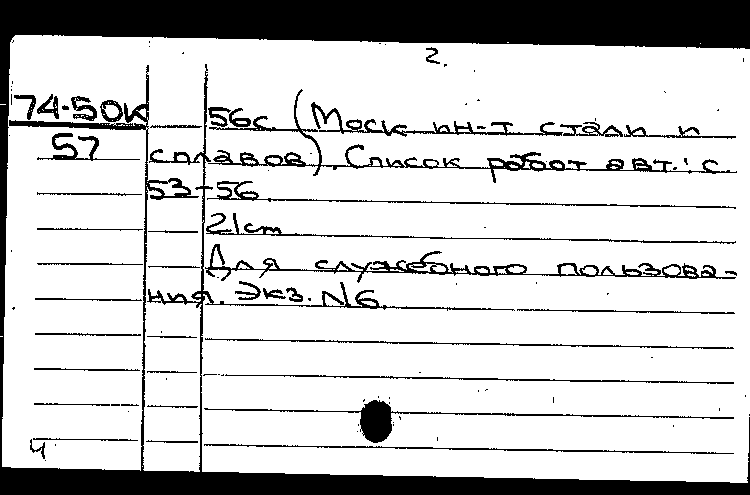 2.
74-50к 56с. (Моск ин-т стали и
57 сплавов). Список работ авт.: с.
53-56.
21cm
Для служебного пользова-
ния. Экз. N6.
ч